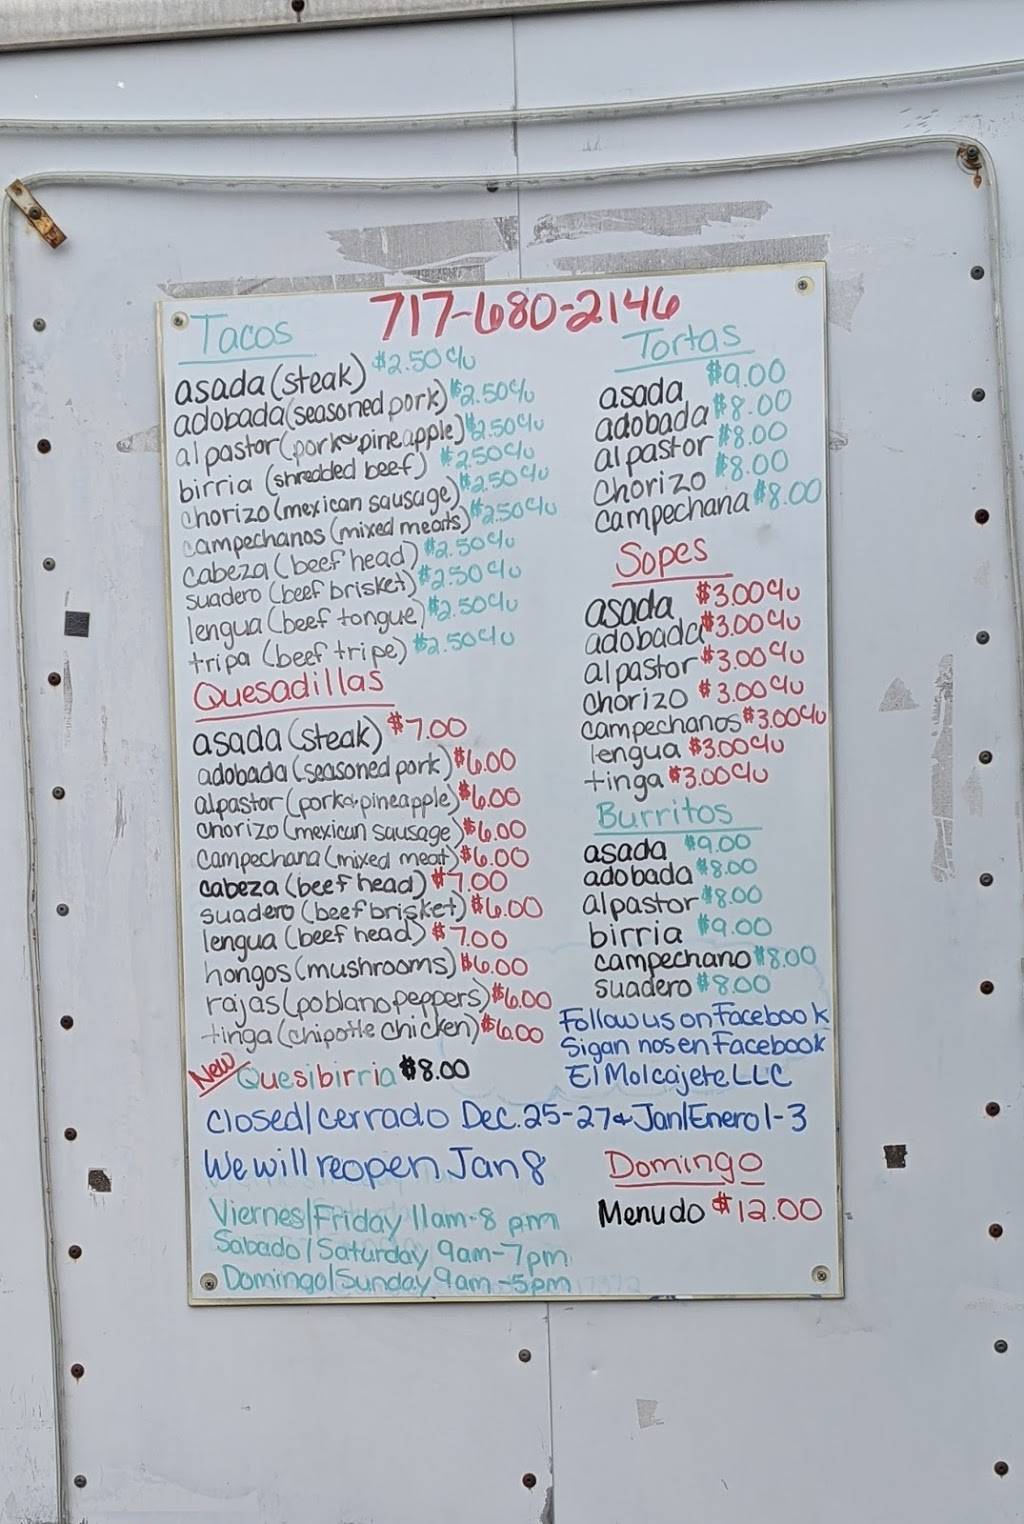 717-680-2146
Tacos
asada (steak) $2.50 c/u
adobada (seasoned pork) $2.50 c/u
al pastor (pork & pineapple) $2.50 c/u
birria (shredded beef) $2.50 c/u
chorizo (mexican sausage) $2.50 c/u
campechanos (mixed meats) $2.50 c/u
cabeza (beef head) $2.50 c/u
suadero (beef brisket) $2.50 c/u
lengua (beef tongue) $2.50 c/u
tripa (beef tripe) $2.50 c/u
Quesadillas
asada (steak) $7.00
adobada (seasoned pork) $6.00
al pastor (pork & pineapple) $6.00
chorizo (mexican sausage) $6.00
Campechana (mixed meat) $6.00
cabeza (beef head) $7.00
suadero (beef brisket) $6.00
lengua (beef head) $7.00
hongos (mushrooms) $6.00
rajas (poblano peppers) $6.00
tinga (chipotle chicken) $6.00
New Quesibirria $8.00
Tortas
asada $9.00
adobada $8.00
al pastor $8.00
Chorizo $8.00
campechana $8.00
Sopes
asada $3.00 c/u
adobada $3.00 c/u
al pastor $3.00 c/u
chorizo $3.00 c/u
campechanos $3.00 c/u
lengua $3.00 c/u
tinga $3.00 c/u
Burritos
asada $9.00
adobada $8.00
al pastor $8.00
birria $9.00
campechano $8.00
suadero $8.00
Follow us on Facebook
Sigan nos en Facebook
El Molcajete LLC
Closed/cerrado Dec. 25-27 & Jan/Enero 1-3
We will reopen Jan 8
Viernes/Friday 11am-8 pm
Sabado/Saturday 9am-7pm
Domingo/Sunday 9am-5pm
Domingo
Menudo $12.00